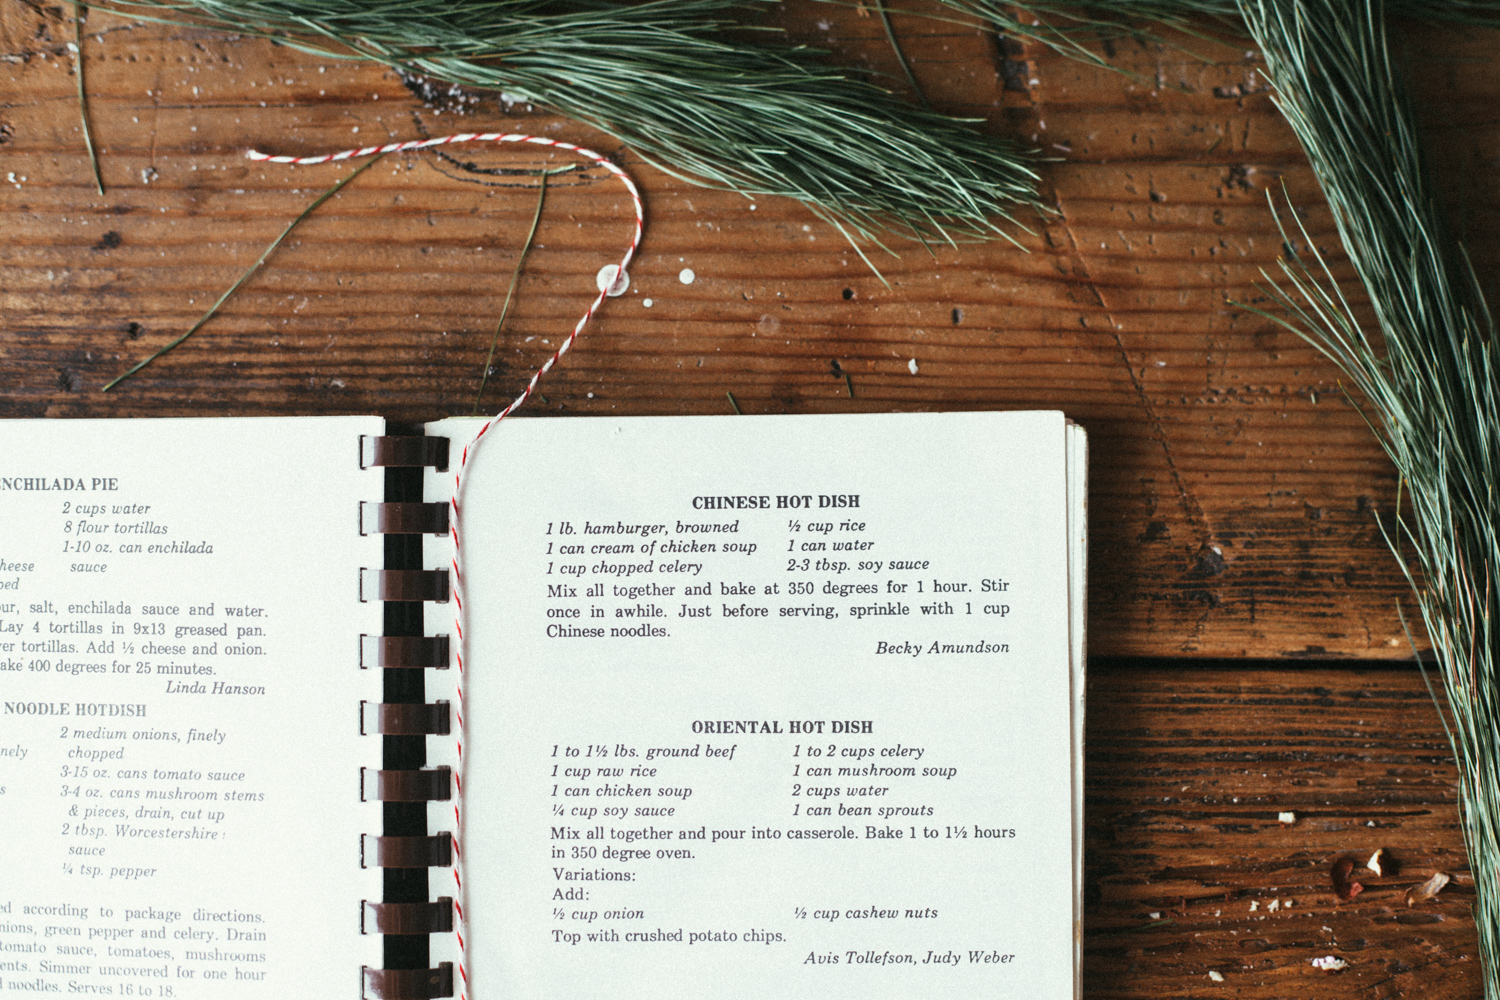 ENCHILADA PIE
2 cups water
8 flour tortillas
1-10 oz. can enchilada
sauce
salt, enchilada sauce and water.
Lay 4 tortillas in 9x13 greased pan.
tortillas. Add ½ cheese and onion.
400 degrees for 25 minutes.
Linda Hanson
NOODLE HOTDISH
2 medium onions, finely
chopped
3-15 oz. cans tomato sauce
3-4 oz. cans mushroom stems
& pieces, drain, cut up
2 tbsp. Worcestershire
sauce
¼ tsp. pepper
according to package directions.
green pepper and celery. Drain
tomato sauce, tomatoes, mushrooms
Simmer uncovered for one hour
noodles. Serves 16 to 18.
CHINESE HOT DISH
1 lb. hamburger, browned ½ cup rice
1 can cream of chicken soup 1 can water
1 cup chopped celery 2-3 tbsp. soy sauce
Mix all together and bake at 350 degrees for 1 hour. Stir
once in awhile. Just before serving, sprinkle with 1 cup
Chinese noodles.
Becky Amundson
ORIENTAL HOT DISH
1 to 1½ lbs. ground beef 1 to 2 cups celery
1 cup raw rice 1 can mushroom soup
1 can chicken soup 2 cups water
¼ cup soy sauce 1 can bean sprouts
Mix all together and pour into casserole. Bake 1 to 1½ hours
in 350 degree oven.
Variations:
Add:
½ cup onion ½ cup cashew nuts
Top with crushed potato chips.
Avis Tollefson, Judy Weber